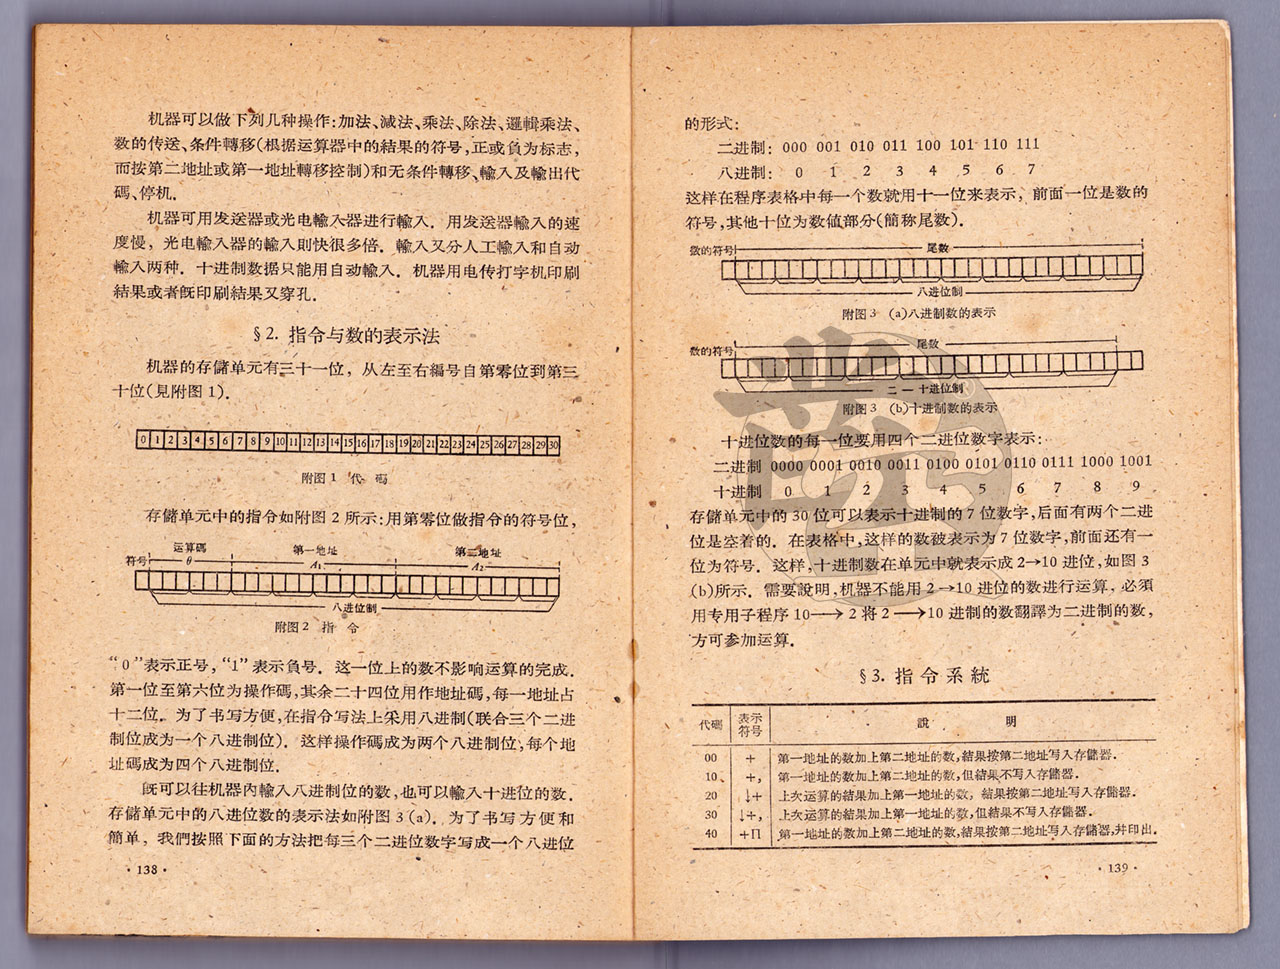 机器可以做下列几种操作:加法、减法、乘法、除法、邏輯乘法、
数的传送、条件轉移(根据运算器中的結果的符号,正或負为标志,
而按第二地址或第一地址轉移控制)和无条件轉移、輸入及輸出代
碼、停机.
机器可用发送器或光电輸入器进行輸入. 用发送器輸入的速
度慢, 光电輸入器的輸入則快很多倍. 輸入又分人工輸入和自动
輸入两种. 十进制数据只能用自动輸入. 机器用电传打字机印刷
結果或者旣印刷結果又穿孔.
§2. 指令与数的表示法
机器的存儲单元有三十一位, 从左至右編号自第零位到第三
十位(見附图1).
0 1 2 3 4 5 6 7 8 9 10 11 12 13 14 15 16 17 18 19 20 21 22 23 24 25 26 27 28 29 30
附图1 代 碼
存儲单元中的指令如附图2所示:用第零位做指令的符号位,
运算碼 第一地址 第二地址
符号 θ A₁ A₂
八进位制
附图2 指 令
“0”表示正号,“1”表示負号. 这一位上的数不影响运算的完成.
第一位至第六位为操作碼,其余二十四位用作地址碼,每一地址占
十二位. 为了书写方便,在指令写法上采用八进制(联合三个二进
制位成为一个八进制位). 这样操作碼成为两个八进制位,每个地
址碼成为四个八进制位.
旣可以往机器內輸入八进制位的数,也可以輸入十进位的数.
存儲单元中的八进位数的表示法如附图3(a). 为了书写方便和
簡单, 我們按照下面的方法把每三个二进位数字写成一个八进位
· 138 ·
的形式:
二进制: 000 001 010 011 100 101 110 111
八进制: 0 1 2 3 4 5 6 7
这样在程序表格中每一个数就用十一位来表示, 前面一位是数的
符号,其他十位为数値部分(簡称尾数).
数的符号 尾数
八进位制
附图3 (a)八进制数的表示
数的符号 尾数
二—十进位制
附图3 (b)十进制数的表示
十进位数的每一位要用四个二进位数字表示:
二进制 0000 0001 0010 0011 0100 0101 0110 0111 1000 1001
十进制 0 1 2 3 4 5 6 7 8 9
存儲单元中的30位可以表示十进制的7位数字,后面有两个二进
位是空着的. 在表格中,这样的数被表示为7位数字,前面还有一
位为符号. 这样,十进制数在单元中就表示成2→10进位,如图3
(b)所示. 需要說明,机器不能用2→10进位的数进行运算, 必須
用专用子程序10→2将2→10进制的数翻譯为二进制的数,
方可参加运算.
§3. 指令系統
代碼 表示符号 說 明
00 + 第一地址的数加上第二地址的数,結果按第二地址写入存儲器.
10 +, 第一地址的数加上第二地址的数,但結果不写入存儲器.
20 ↓+ 上次运算的結果加上第一地址的数, 結果按第二地址写入存儲器.
30 ↓+, 上次运算的結果加上第一地址的数,但結果不写入存儲器.
40 +П 第一地址的数加上第二地址的数,結果按第二地址写入存儲器,幷印出.
· 139 ·